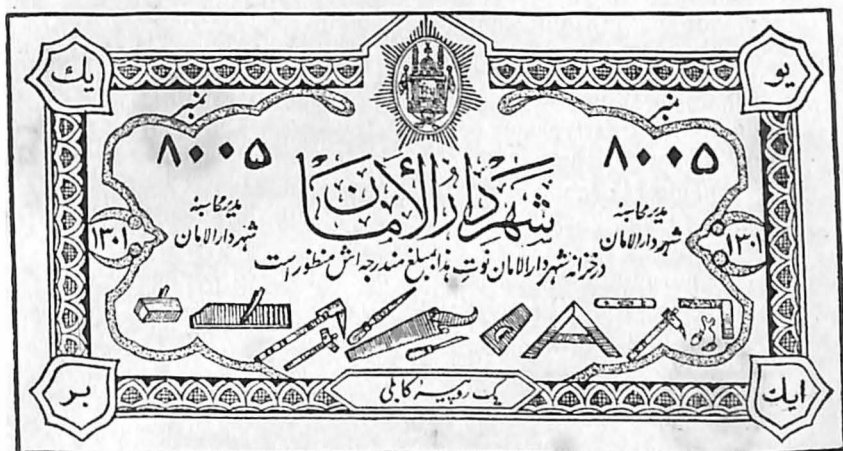 یو
یك
نمبر
نمبر
۸۰۰۵
۸۰۰۵
شهر دارُ الأمَان
مدیر محاسبه
شهر دارالامان
مدیر محاسبه
شهر دارالامان
۱۳۰۱
۱۳۰۱
در خزانه شهر دارالامان نوت هذا بمبلغ مندرجه اش منظور است
ایك
یک روپیهٔ کابلی
بر